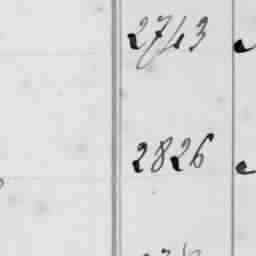 2743
2826